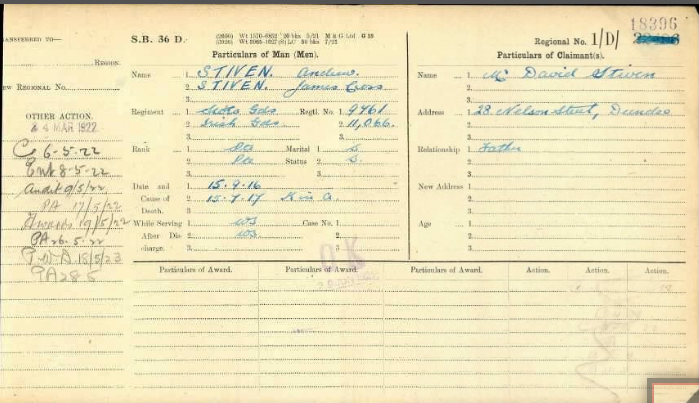 18396
S.B. 36 D.
Regional No. 1/D/
TRANSFERRED TO—
REGION.
NEW REGIONAL No.
OTHER ACTION.
24 MAR 1922
C 6-5-22
Ent 8-5-22
Audit 9/5/22
PA 17/5/22
Awards 19/5/22
PA 26.5.22
PA 28 5
Particulars of Man (Men).
Name 1. STIVEN. Andrew.
2. STIVEN. James
3.
Regiment 1. Scots Gds. Regtl. No. 1. 9461
2. Irish Gds. 2. 11,066.
3. 3.
Rank 1. Pte Marital 1. S.
2. Pte Status 2. S.
3. 3.
Date and 1. 15.9.16
Cause of 2. 15.7.17 K in A.
Death. 3.
While Serving 1. WS Case No. 1.
After Dis- 2. WS 2.
charge. 3. 3.
O.K
Particulars of Claimant(s).
Name 1. Mr David Stiven
2.
3.
Address 1. 28 Nelson Street, Dundee
2.
3.
Relationship 1. Father
2.
3.
New Address 1.
2.
3.
Age 1.
2.
3.
Particulars of Award. Particulars of Award. Particulars of Award. Action. Action. Action.